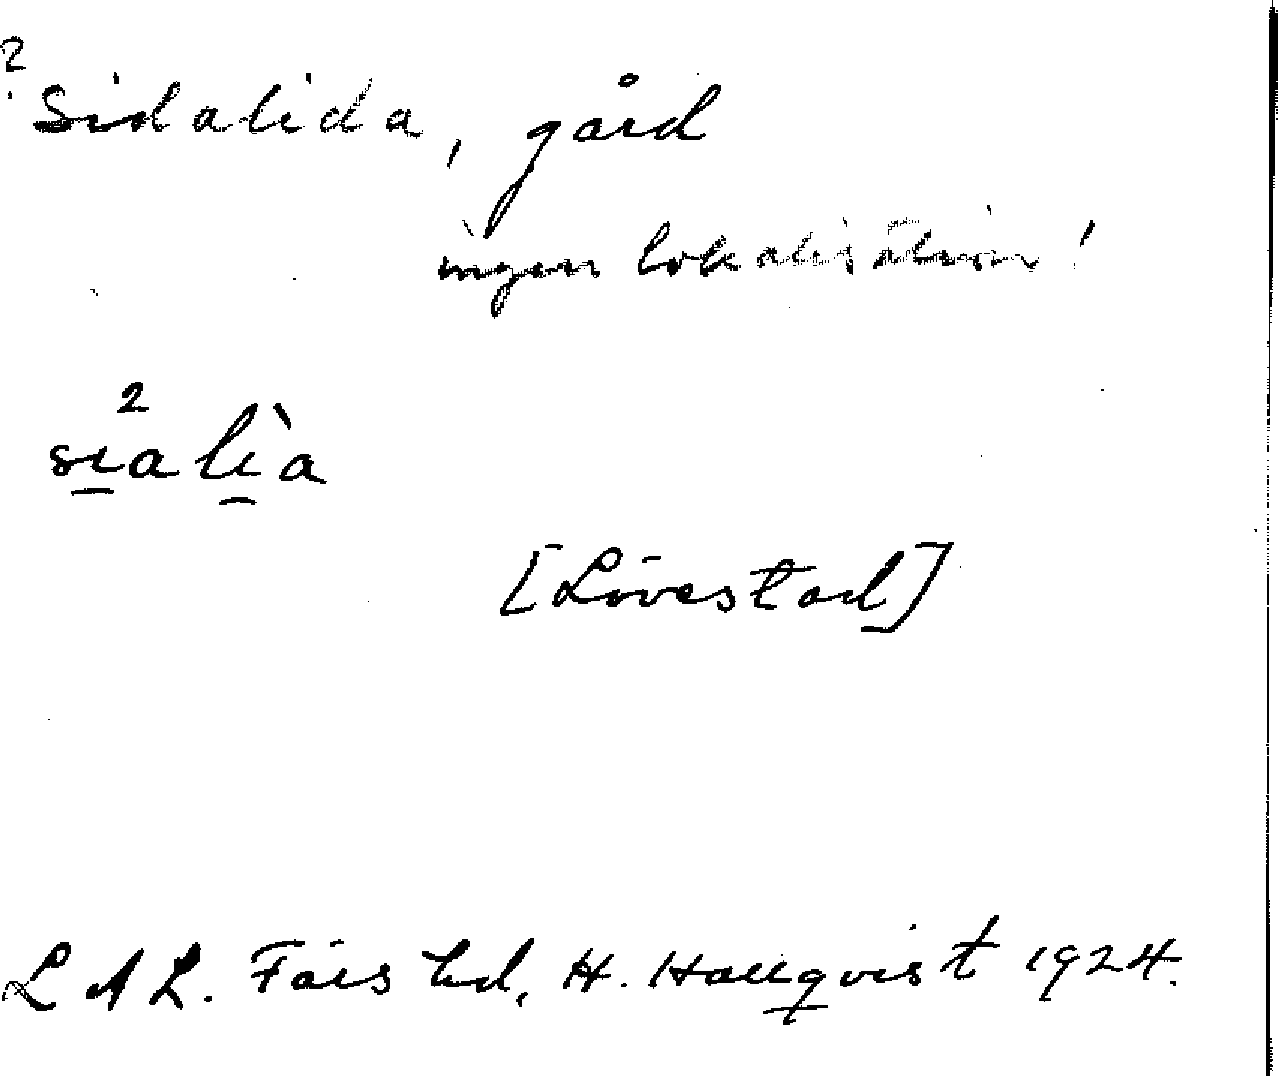 ? Sidalida, gård
ingen lokalisation!
2
sialìa
[Lövestad]
LAL. Färs hd, H. Hallqvist 1924.